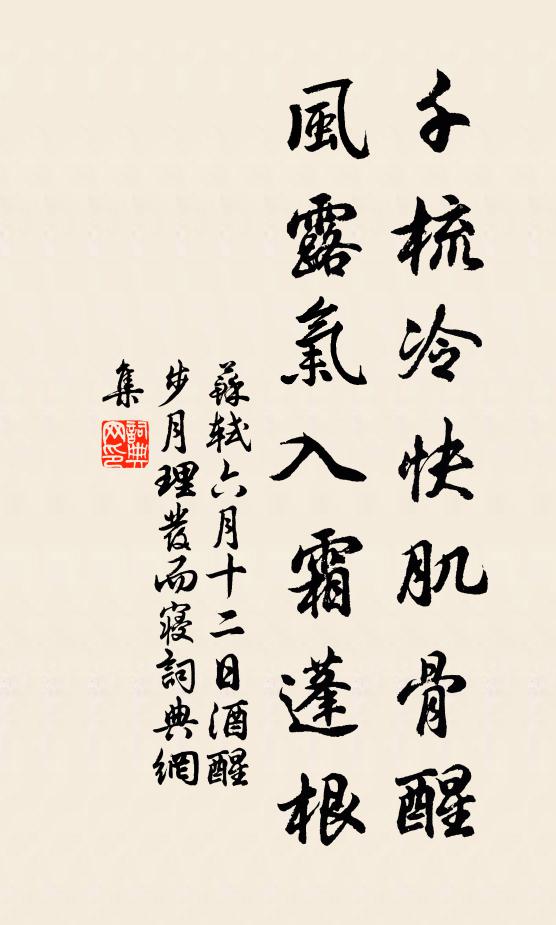 千梳冷快肌骨醒
風露氣入霜蓬根
蘇軾六月十二日酒醒
步月理發而寢詞典網
集
詞典
网印